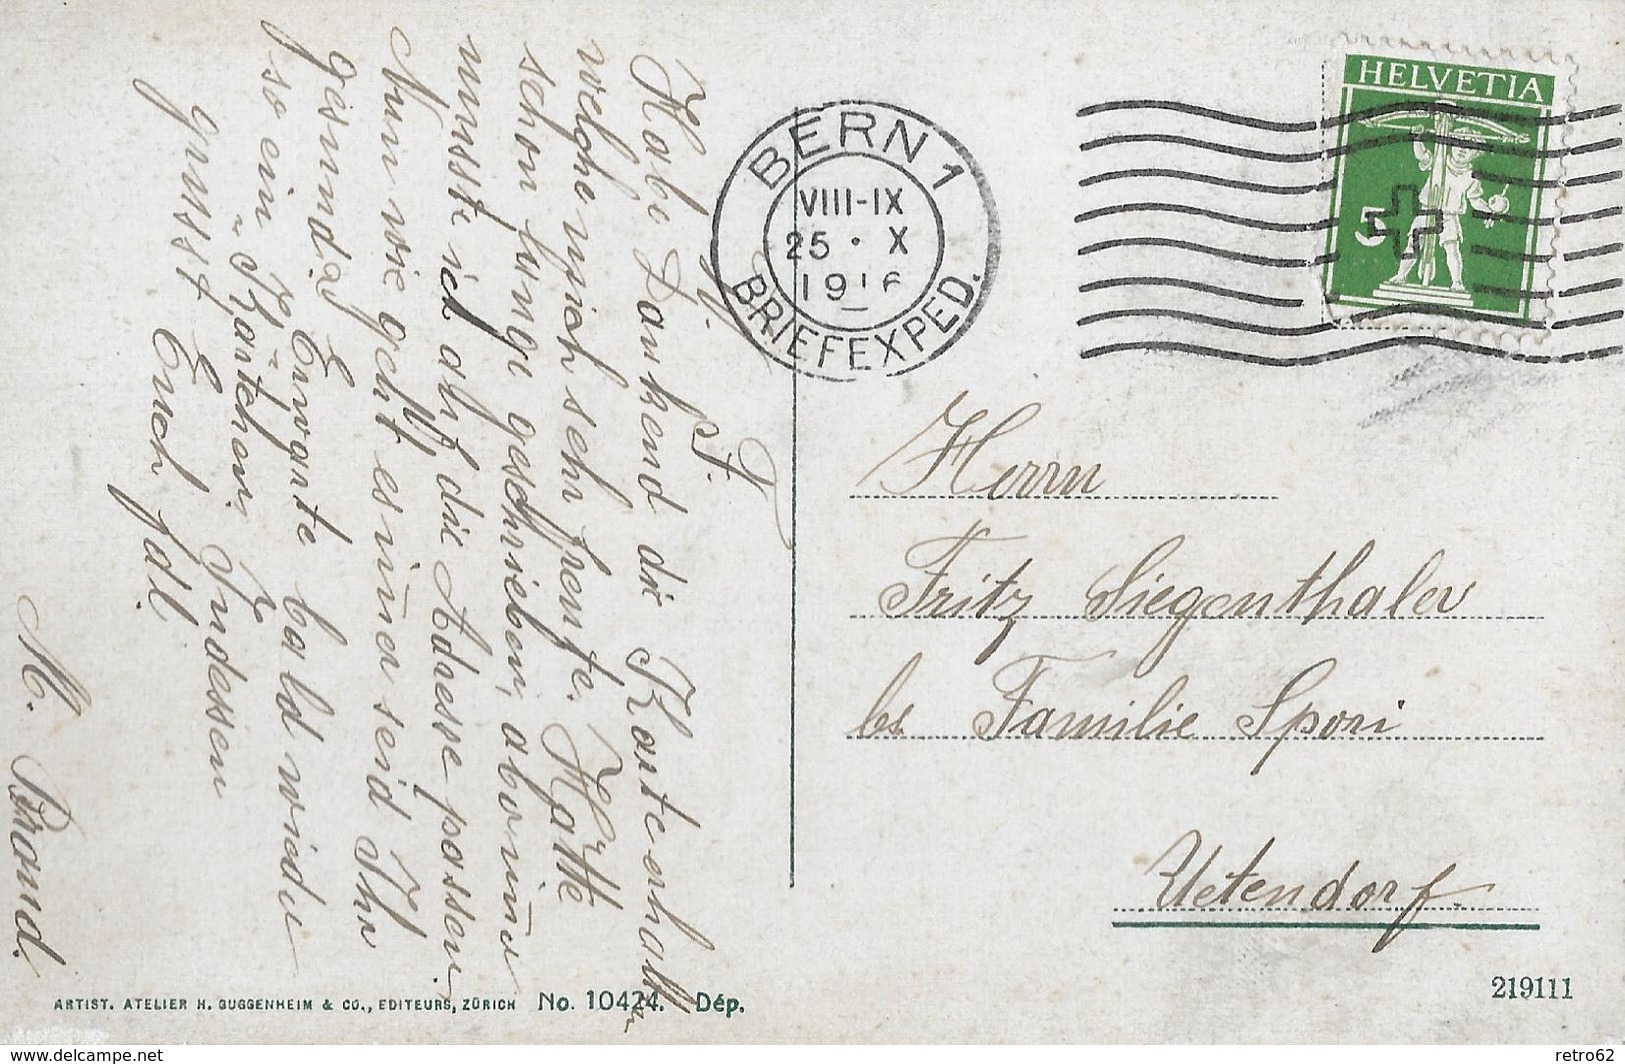 W. F.
Habe Dankend die Karte erhalten
welche mich sehr freute. Hatte
schon lange geschrieben, ab wīmu
musste ich auf die Adresse passen
Nun wie geht es im̄er seid Ihr
gesund? Erwarte bald wieder
so ein „Kärtchen. Indessen
grüsst Euch fdl.
M. Brand.
BERN 1
VIII-IX
25 • X
1916
BRIEFEXPED.
HELVETIA
5
Herrn
Fritz Siegenthaler
bs Familie Spori
Uetendorf.
ARTIST. ATELIER H. GUGGENHEIM & CO., EDITEURS, ZÜRICH No. 10424. Dép.
219111
https://www.delcampe.net
retro62